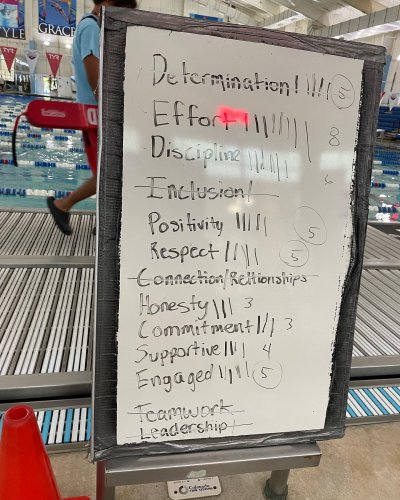 GRACE
TYR
Determination ||||| 5
Effort |||||||| 8
Discipline |||||| 6
Inclusion
Positivity ||||| 5
Respect ||||| 5
Connection/Relltionships
Honesty ||| 3
Commitment ||| 3
Supportive |||| 4
Engaged ||||| 5
Teamwork
Leadership